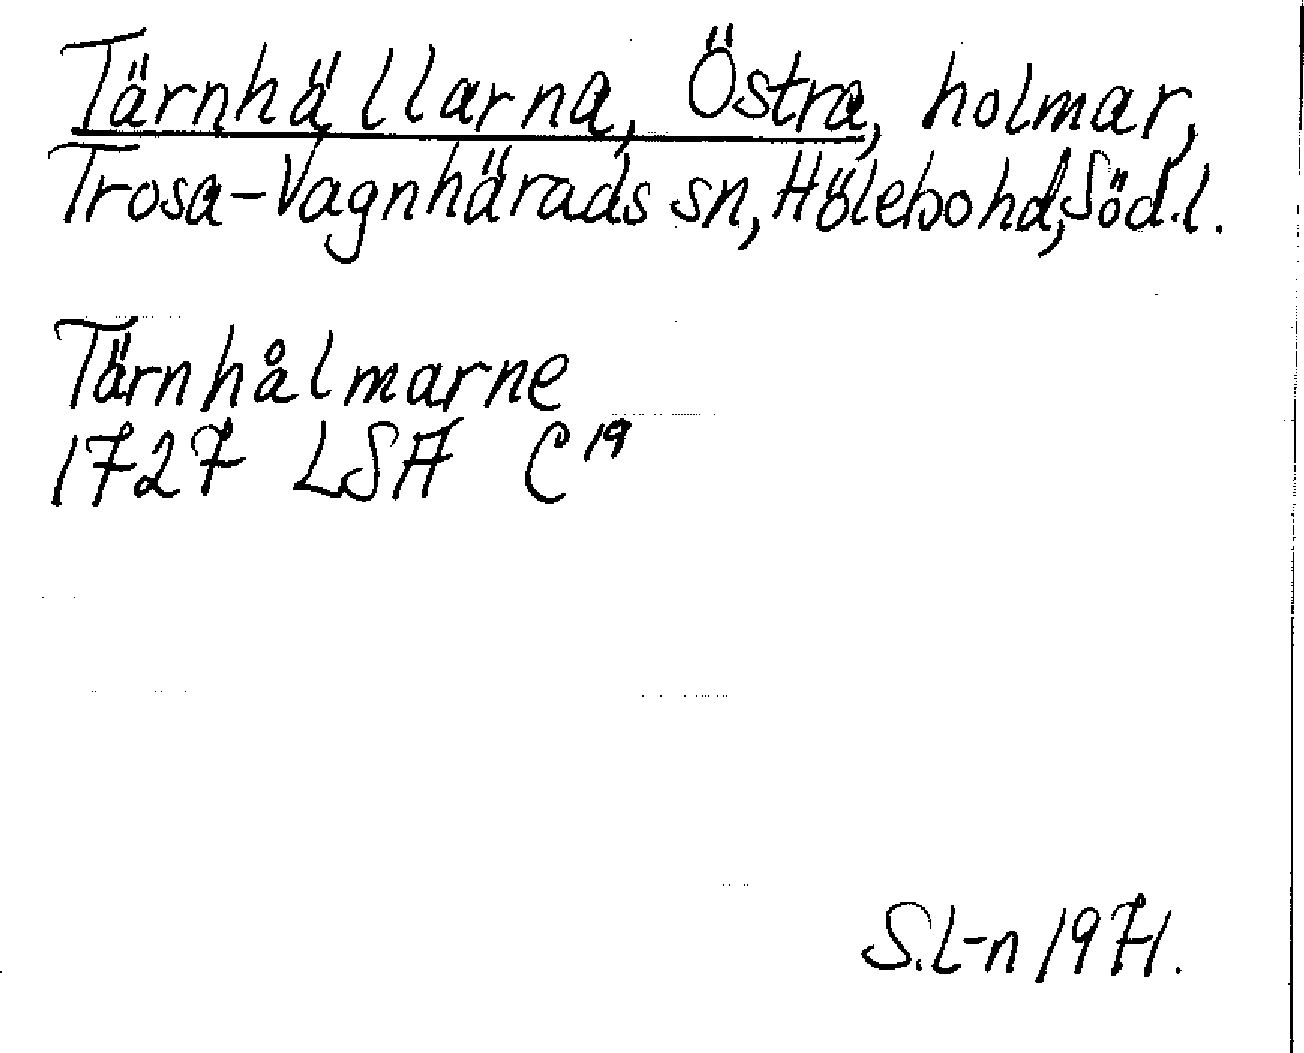 Tärnhällarna, Östra, holmar,
Trosa-Vagnhärads sn, Hölebo hd, Söd.l.
Tärnhålmarne
1727 LSA C 19
S.L-n 1971.